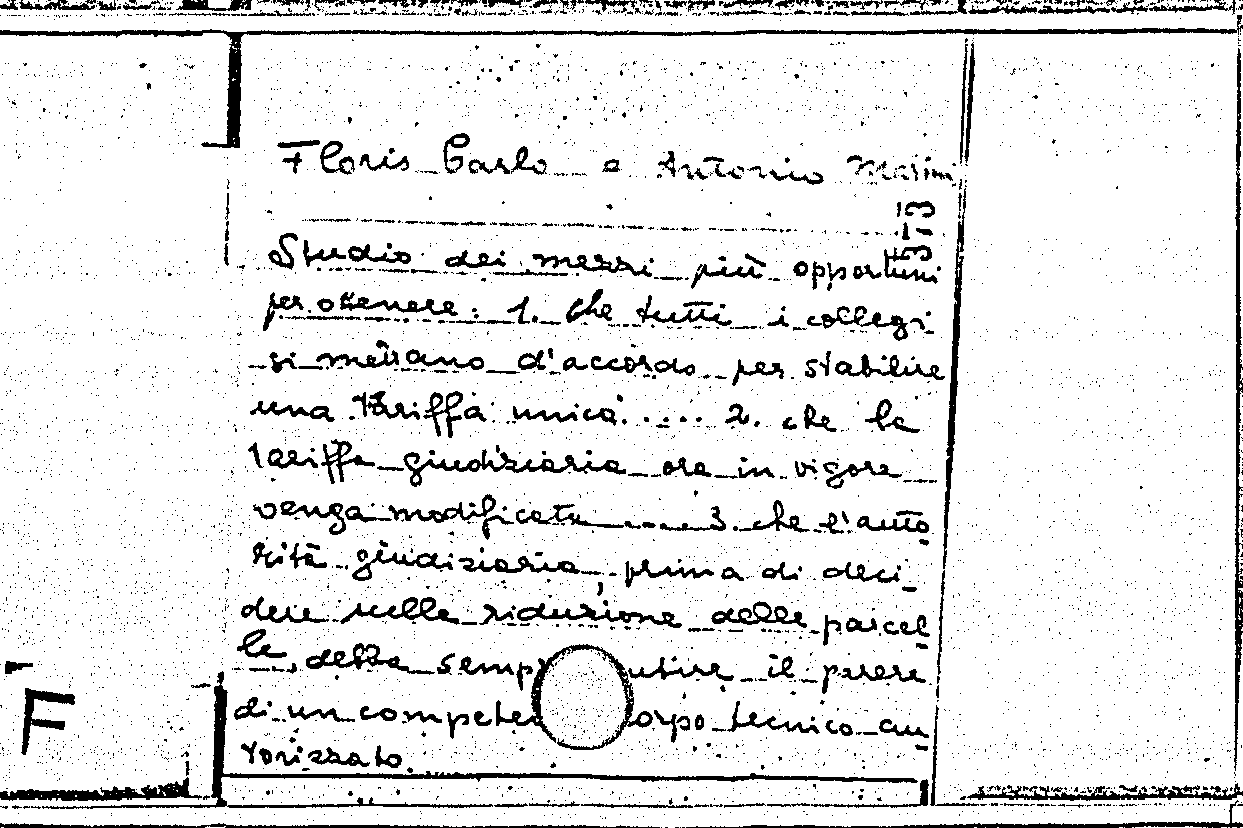 Floris Carlo e Antonio Masini
5-13
Studio dei mezzi più opportuni
per ottenere: 1. che tutti i collegi
si mettano d'accordo per stabilire
una tariffa unica.... 2. che la
tariffa giudiziaria ora in vigore
venga modificata .... 3. che l'auto
rità giudiziaria, prima di deci_
dere sulle riduzione delle parcel
le, debba il parere
di un tecnico au
torizzato.
F